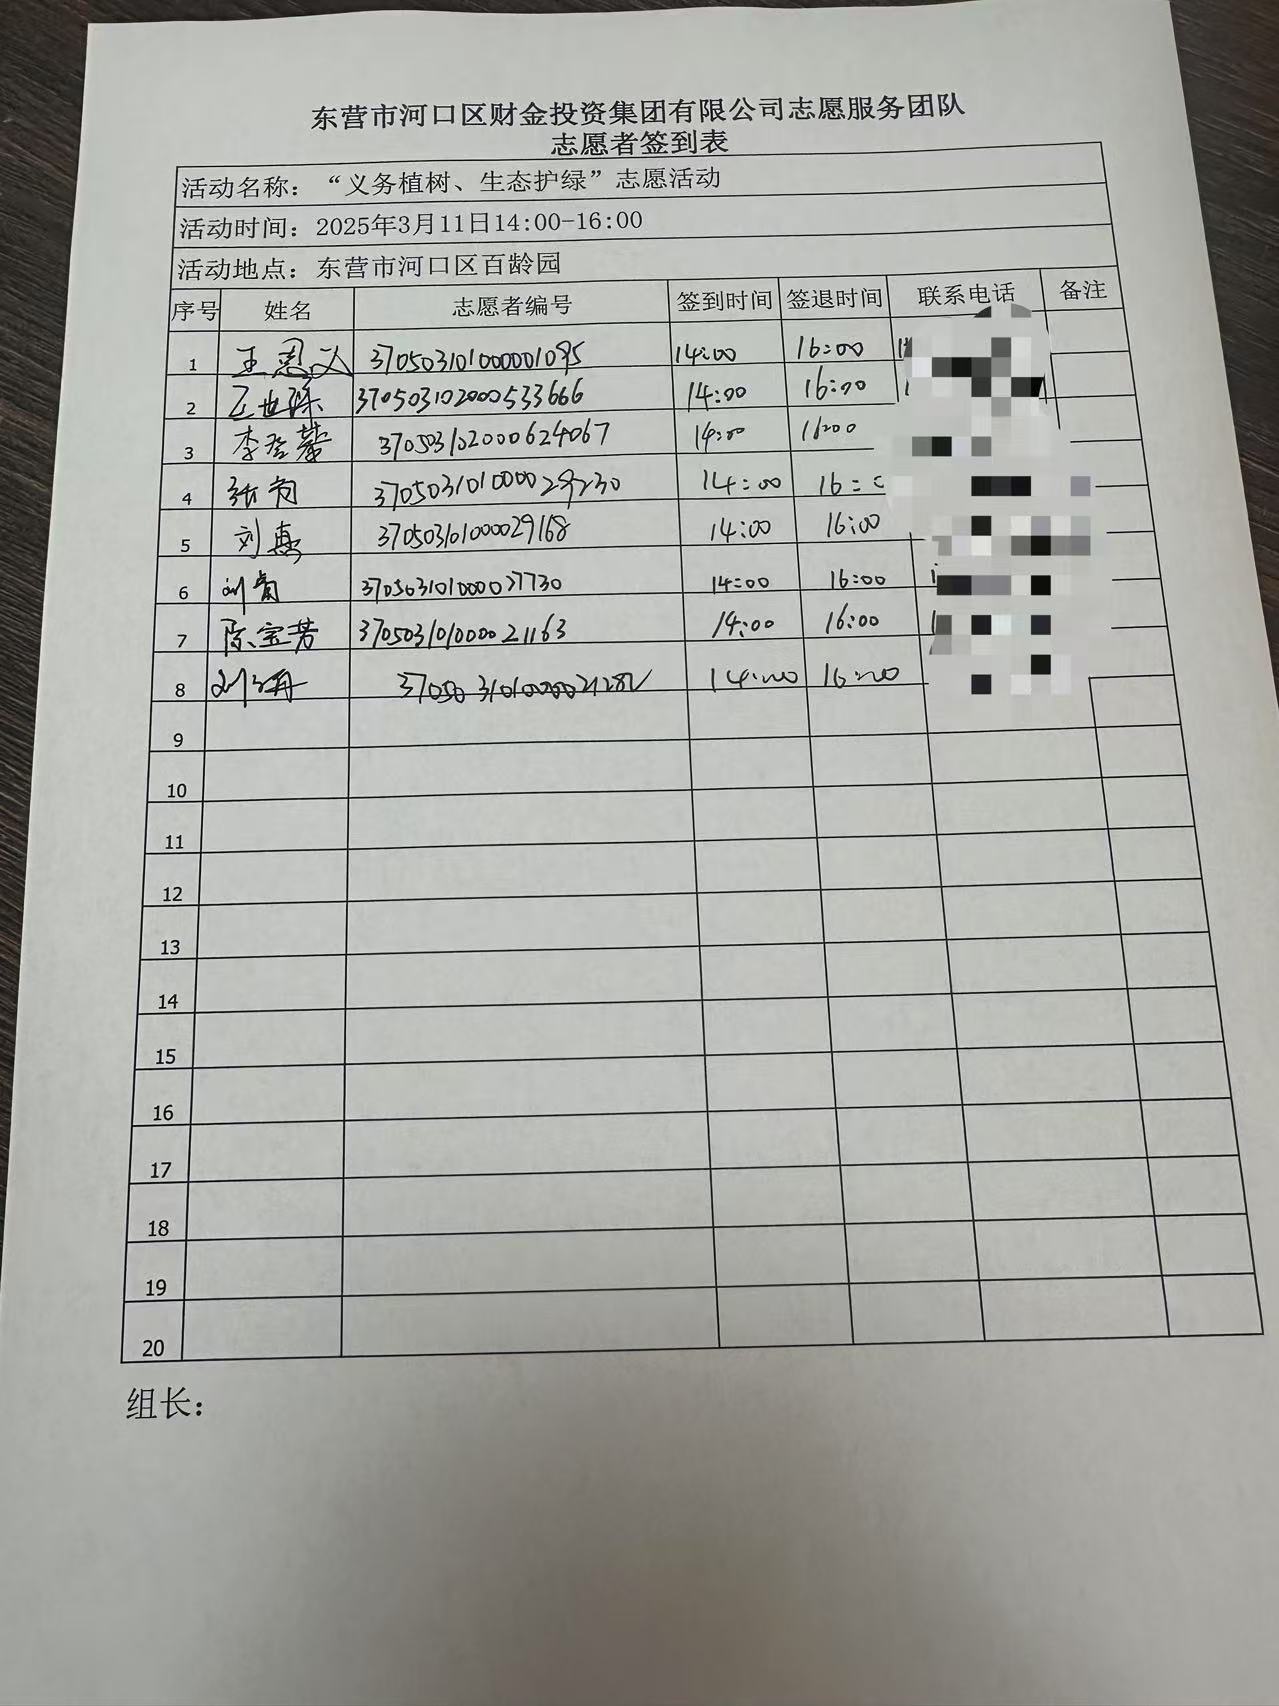 东营市河口区财金投资集团有限公司志愿服务团队
志愿者签到表
活动名称：“义务植树、生态护绿”志愿活动
活动时间：2025年3月11日14:00-16:00
活动地点：东营市河口区百龄园
序号 姓名 志愿者编号 签到时间 签退时间 联系电话 备注
1 370503101000001095 14:00 16:00
2 370503102000533666 14:00 16:00
3 370503102000624067 14:00 16:00
4 370503101000029230 14:00
5 刘 370503101000029168 14:00 16:00
6 刘 14:00 16:00
7 陈宝芳 370503101000021163 14:00 16:00
8 刘 14:00 16:00
9
10
11
12
13
14
15
16
17
18
19
20
组长：